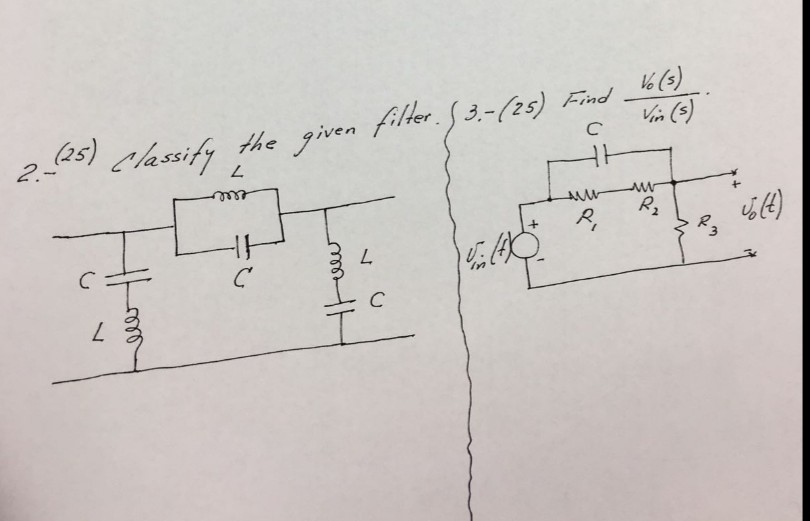 2.- (25) Classify the given filter.
L
C
C
L
L
C
3.-(25) Find Vo(s)
Vin(s).
C
R1
R2
R3
+
-
Vin(t)
+
Vo(t)
-